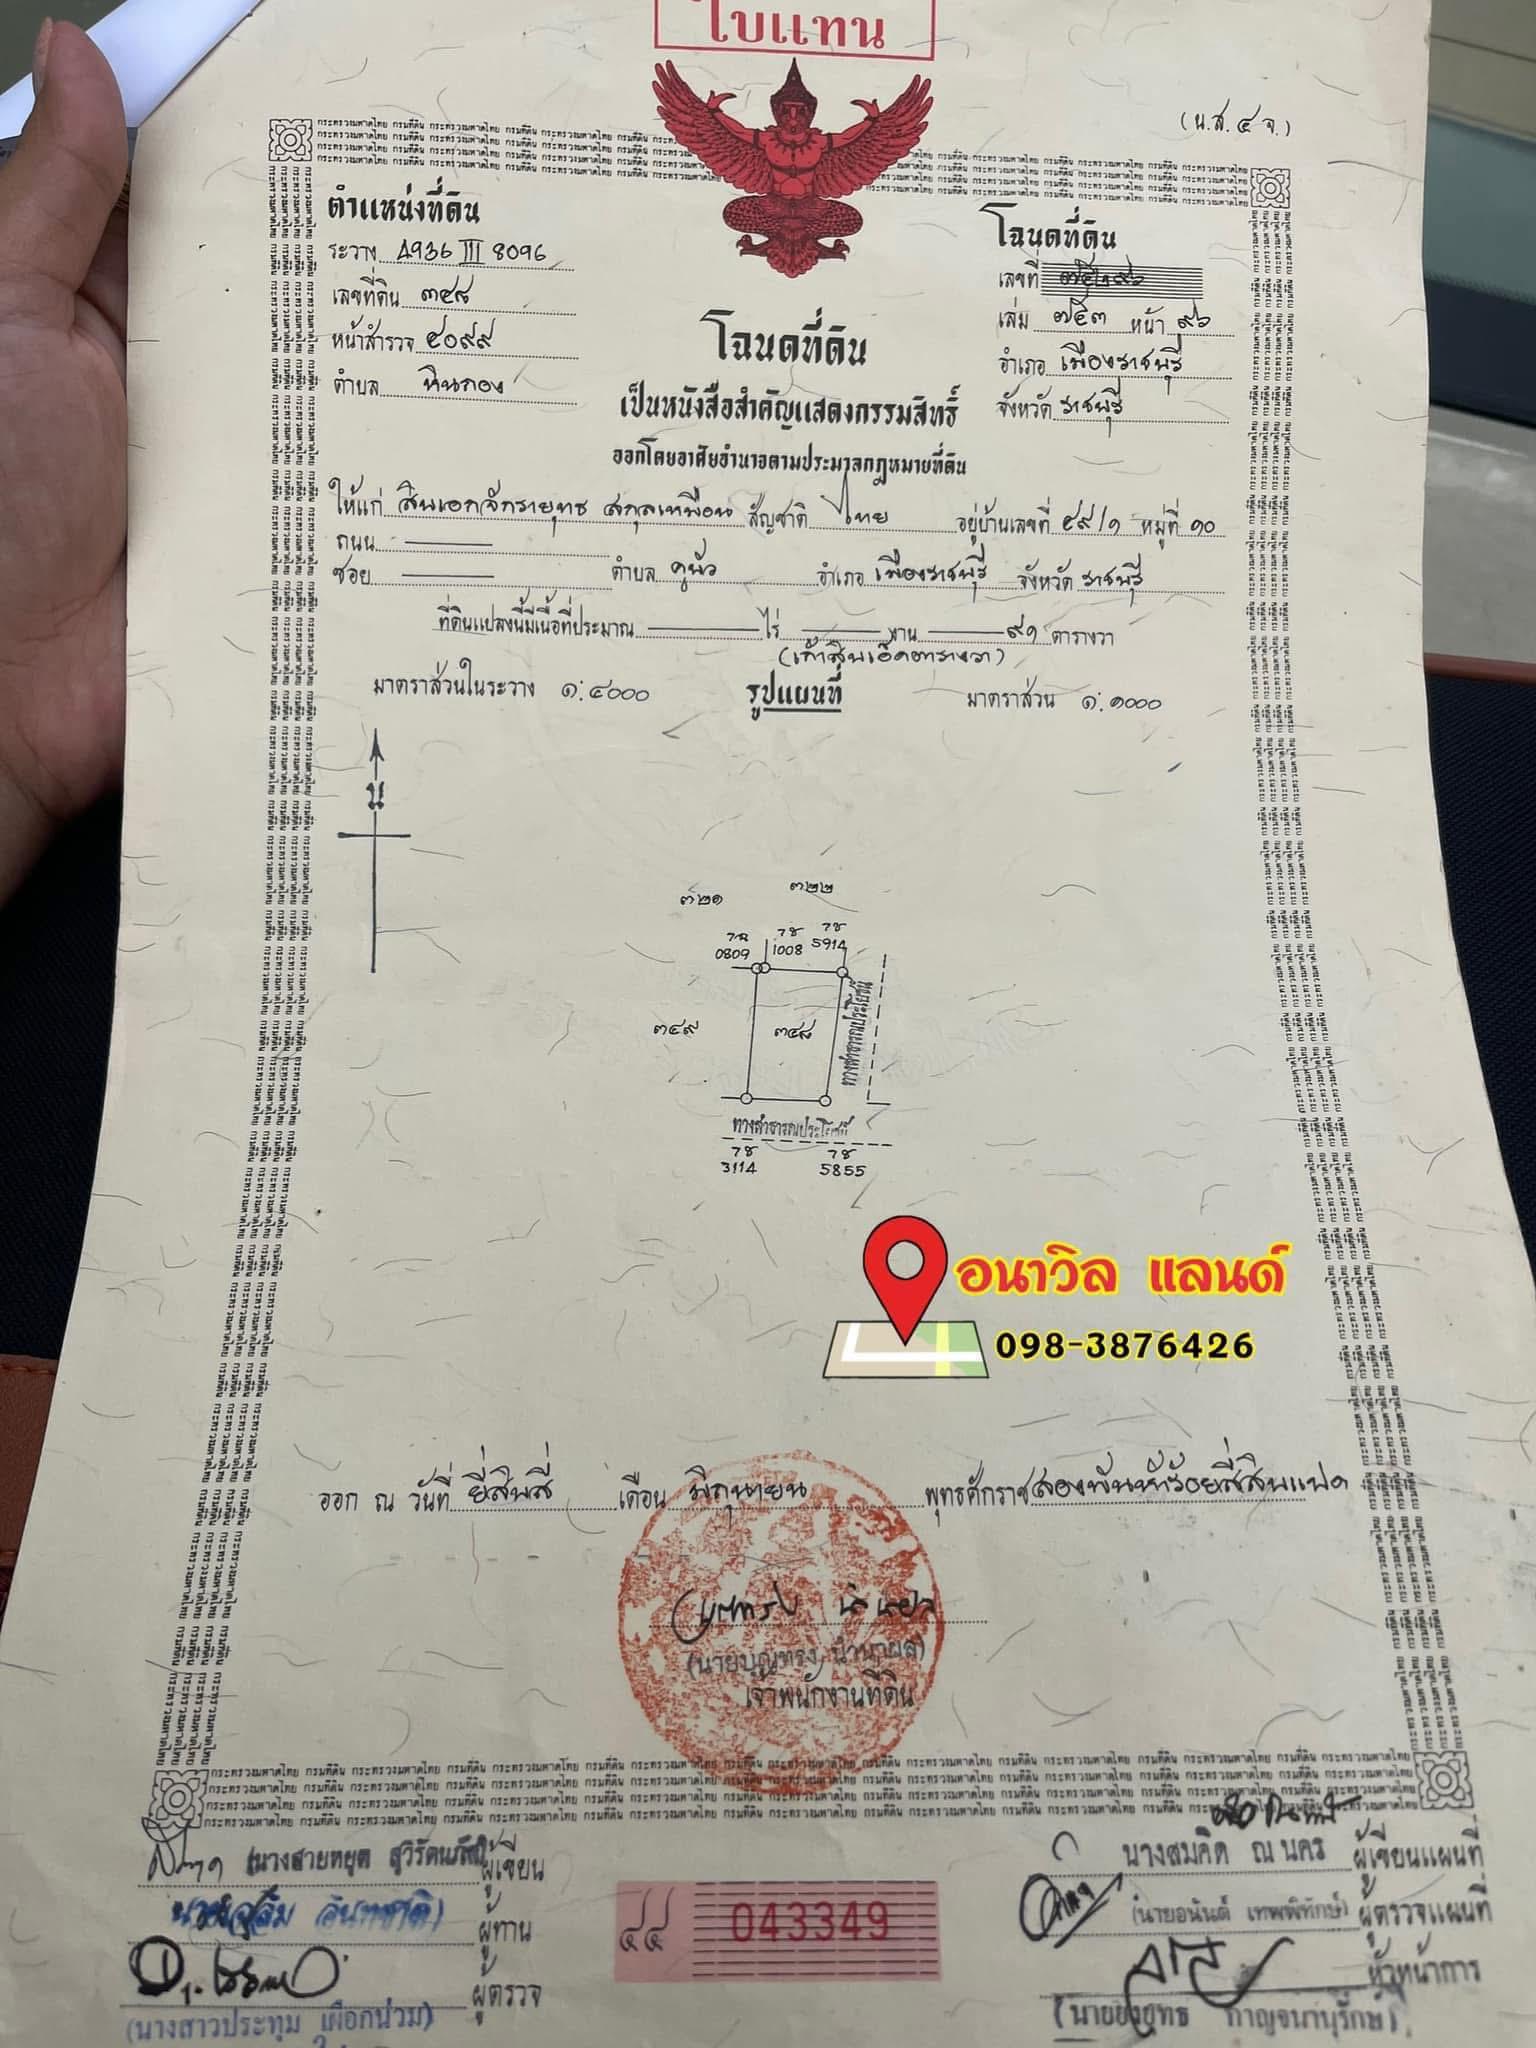 ใบแทน
(น.ส.๔ จ.)
ตำแหน่งที่ดิน
ระวาง 4936 III 8096
เลขที่ดิน ๓๔๘
หน้าสำรวจ ๕๐๙๙
ตำบล หินกอง
โฉนดที่ดิน
เลขที่
เล่ม ๗๕๓ หน้า ๙๖
อำเภอ เมืองราชบุรี
จังหวัด ราชบุรี
โฉนดที่ดิน
เป็นหนังสือสำคัญแสดงกรรมสิทธิ์
ออกโดยอาศัยอำนาจตามประมวลกฎหมายที่ดิน
ให้แก่ สิบเอกจักรายุทธ สกุลเหมือน สัญชาติ ไทย อยู่บ้านเลขที่ ๔๙/๑ หมู่ที่ ๑๐
ถนน
ซอย ตำบล คูบัว อำเภอ เมืองราชบุรี จังหวัด ราชบุรี
ที่ดินแปลงนี้มีเนื้อที่ประมาณ ไร่ งาน ๙๑ ตารางวา
(เก้าสิบเอ็ดตารางวา)
มาตราส่วนในระวาง ๑:๔๐๐๐ รูปแผนที่ มาตราส่วน ๑:๑๐๐๐
น
๓๒๑ ๓๒๒
0809 1008 5914
๓๔๙ ๓๔๘ ทางสาธารณประโยชน์
ทางสาธารณประโยชน์
3114 5855
อนาวิล แลนด์
098-3876426
ออก ณ วันที่ ยี่สิบสี่ เดือน มิถุนายน พุทธศักราช สองพันห้าร้อยสี่สิบแปด
(นายบุญทรง นำนาผล)
เจ้าพนักงานที่ดิน
กระทรวงมหาดไทย กรมที่ดิน
ผู้เขียน
ผู้ทาน
ผู้ตรวจ
(นางสาวประทุม เผือกน่วม)
๔๔ 043349
นางสมคิด ณ นคร ผู้เขียนแผนที่
(นายอนันต์ เทพพิทักษ์) ผู้ตรวจแผนที่
หัวหน้าการ